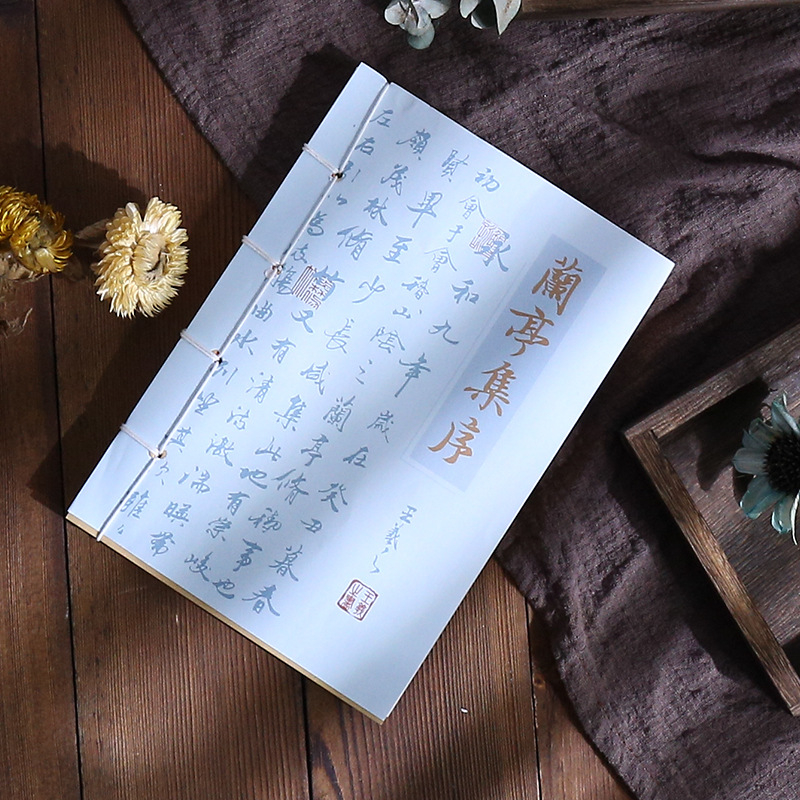 蘭亭集序
王羲之
永和九年歲在癸丑暮春
初會于會稽山陰之蘭亭脩禊事也
畢至少長咸集此地有崇峻
領茂林脩竹又有清流激湍暎帶
左右引以為流觴曲水列坐其次雖